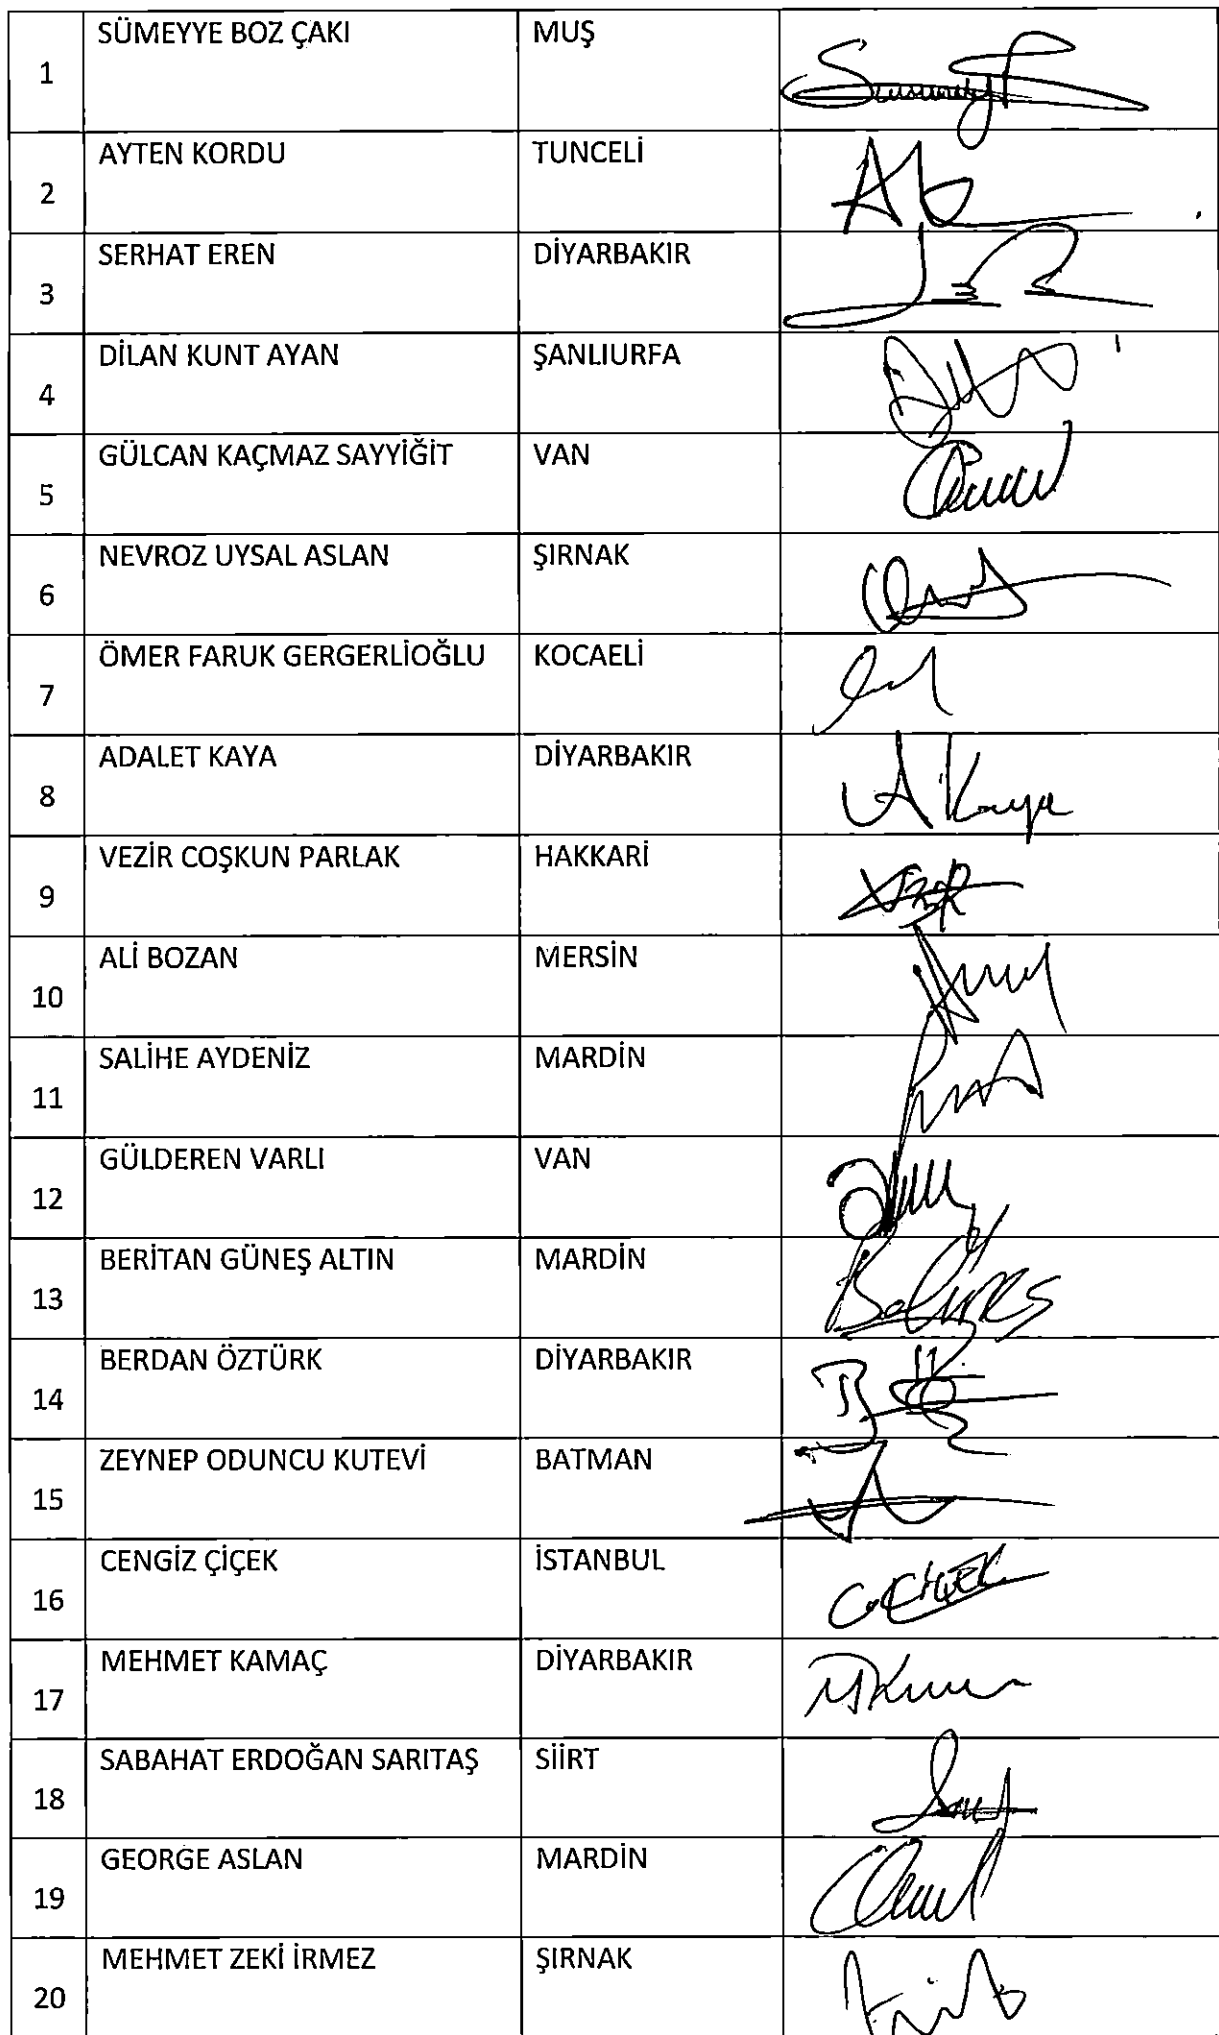 1 SÜMEYYE BOZ ÇAKI MUŞ
2 AYTEN KORDU TUNCELİ
3 SERHAT EREN DİYARBAKIR
4 DİLAN KUNT AYAN ŞANLIURFA
5 GÜLCAN KAÇMAZ SAYYİĞİT VAN
6 NEVROZ UYSAL ASLAN ŞIRNAK
7 ÖMER FARUK GERGERLİOĞLU KOCAELİ
8 ADALET KAYA DİYARBAKIR A Kaya
9 VEZİR COŞKUN PARLAK HAKKARİ
10 ALİ BOZAN MERSİN
11 SALİHE AYDENİZ MARDİN
12 GÜLDEREN VARLI VAN
13 BERİTAN GÜNEŞ ALTIN MARDİN
14 BERDAN ÖZTÜRK DİYARBAKIR
15 ZEYNEP ODUNCU KUTEVİ BATMAN
16 CENGİZ ÇİÇEK İSTANBUL
17 MEHMET KAMAÇ DİYARBAKIR
18 SABAHAT ERDOĞAN SARITAŞ SİİRT
19 GEORGE ASLAN MARDİN
20 MEHMET ZEKİ İRMEZ ŞIRNAK